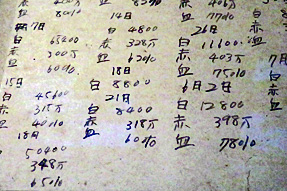 400万
血 80%
7日
白 65400
赤 300万
血 60%
15日
白 45600
赤 315万
血 40%
18日
50400
348万
65%
14日
白 4800
赤 328万
血 62%
18日
白 8800
21日
白 8400
赤 318万
血 60%
血 77%
26日
白 11600
赤 403万
血 75%
6月2日
白 12800
赤 398万
血 78%
白
赤
血
7月
白
赤
血